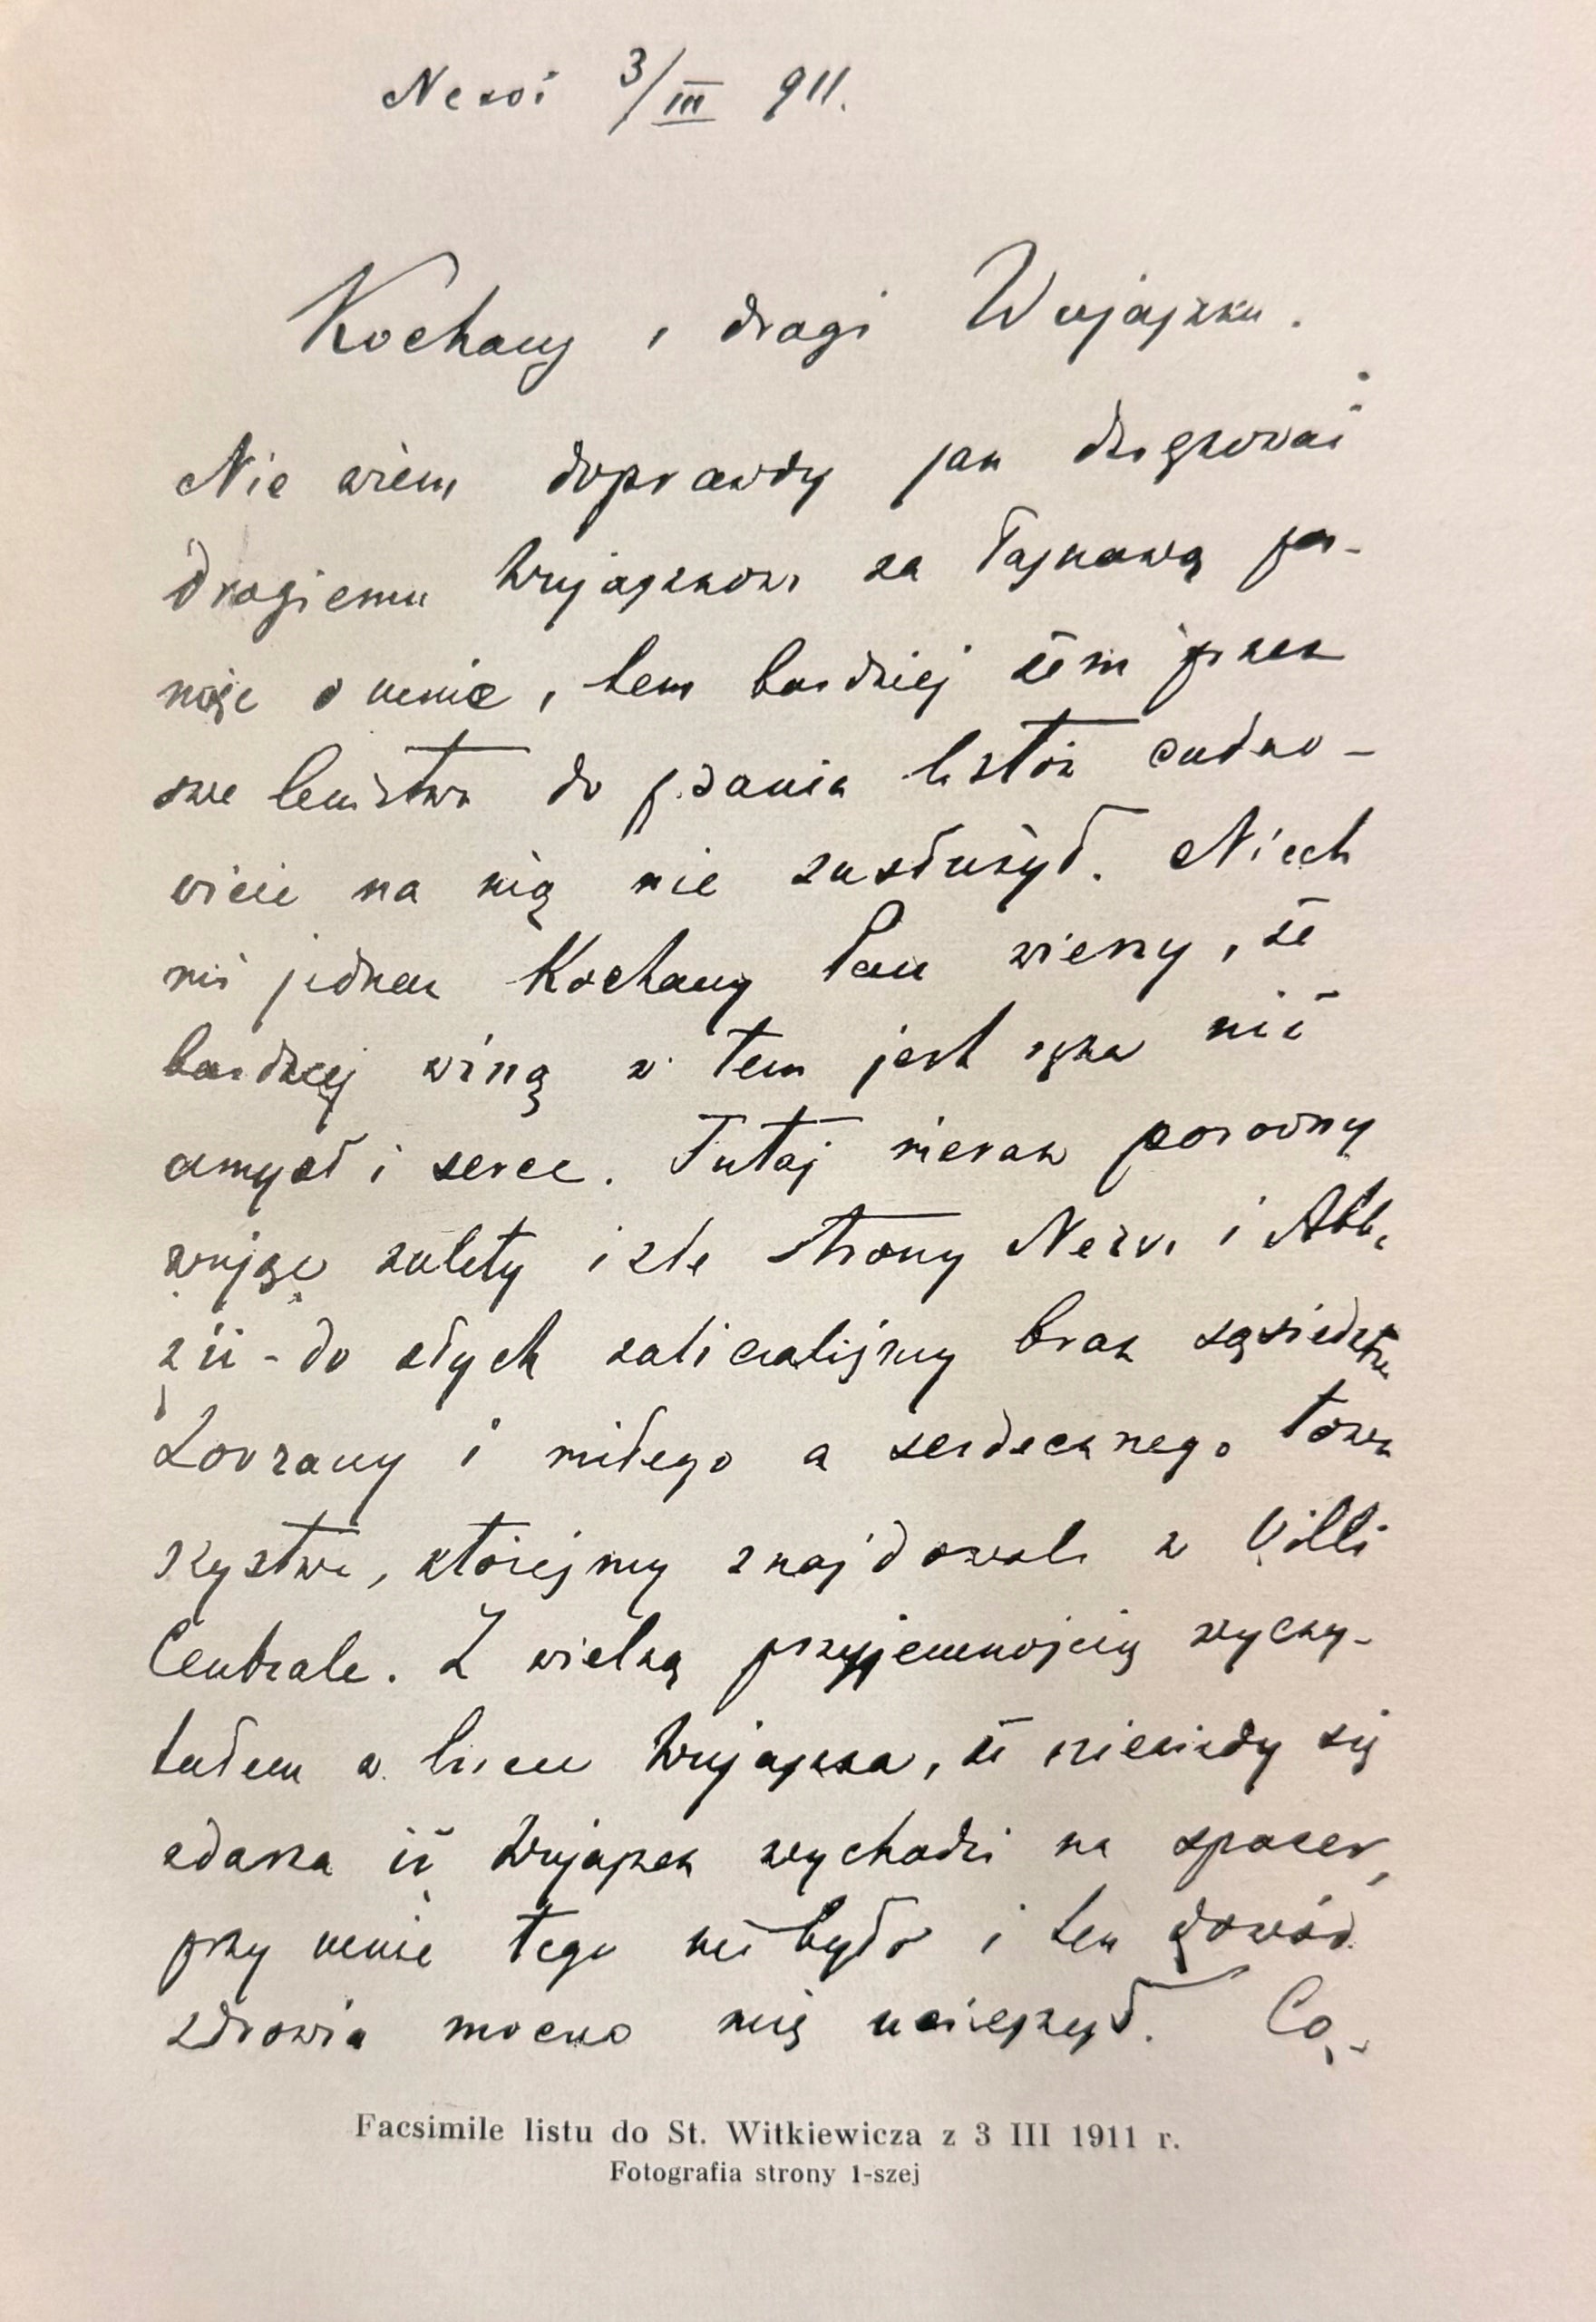 Nervi 3/III 911.
Kochany i drogi Wujaszku.
Nie wiem doprawdy jak dziękować
drogiemu Wujaszkowi za łaskawą pa-
mięć o mnie, tem bardziej żem przez
swe lenistwo do pisania listów cudno-
wicie na nią nie zasłużył. Niech
mi jednak Kochany Pan wierzy, że
bardziej winą w tem jest ręka niż
umysł i serce. Tutaj nieraz porówny
wując zalety i złe strony Nervi i Abba
zii - do złych zaliczaliśmy brak sąsiedztwa
Lovrany i miłego a serdecznego towa
rzystwa, któreśmy znajdowali w Villi
Centrale. Z wielką przyjemnością wyczy-
tałem w liście Wujaszka, że niekiedy się
zdarza iż Wujaszek wychodzi na spacer,
przy mnie tego nie było i ten dowód
zdrowia mocno mię ucieszył. Co-
Facsimile listu do St. Witkiewicza z 3 III 1911 r.
Fotografia strony 1-szej